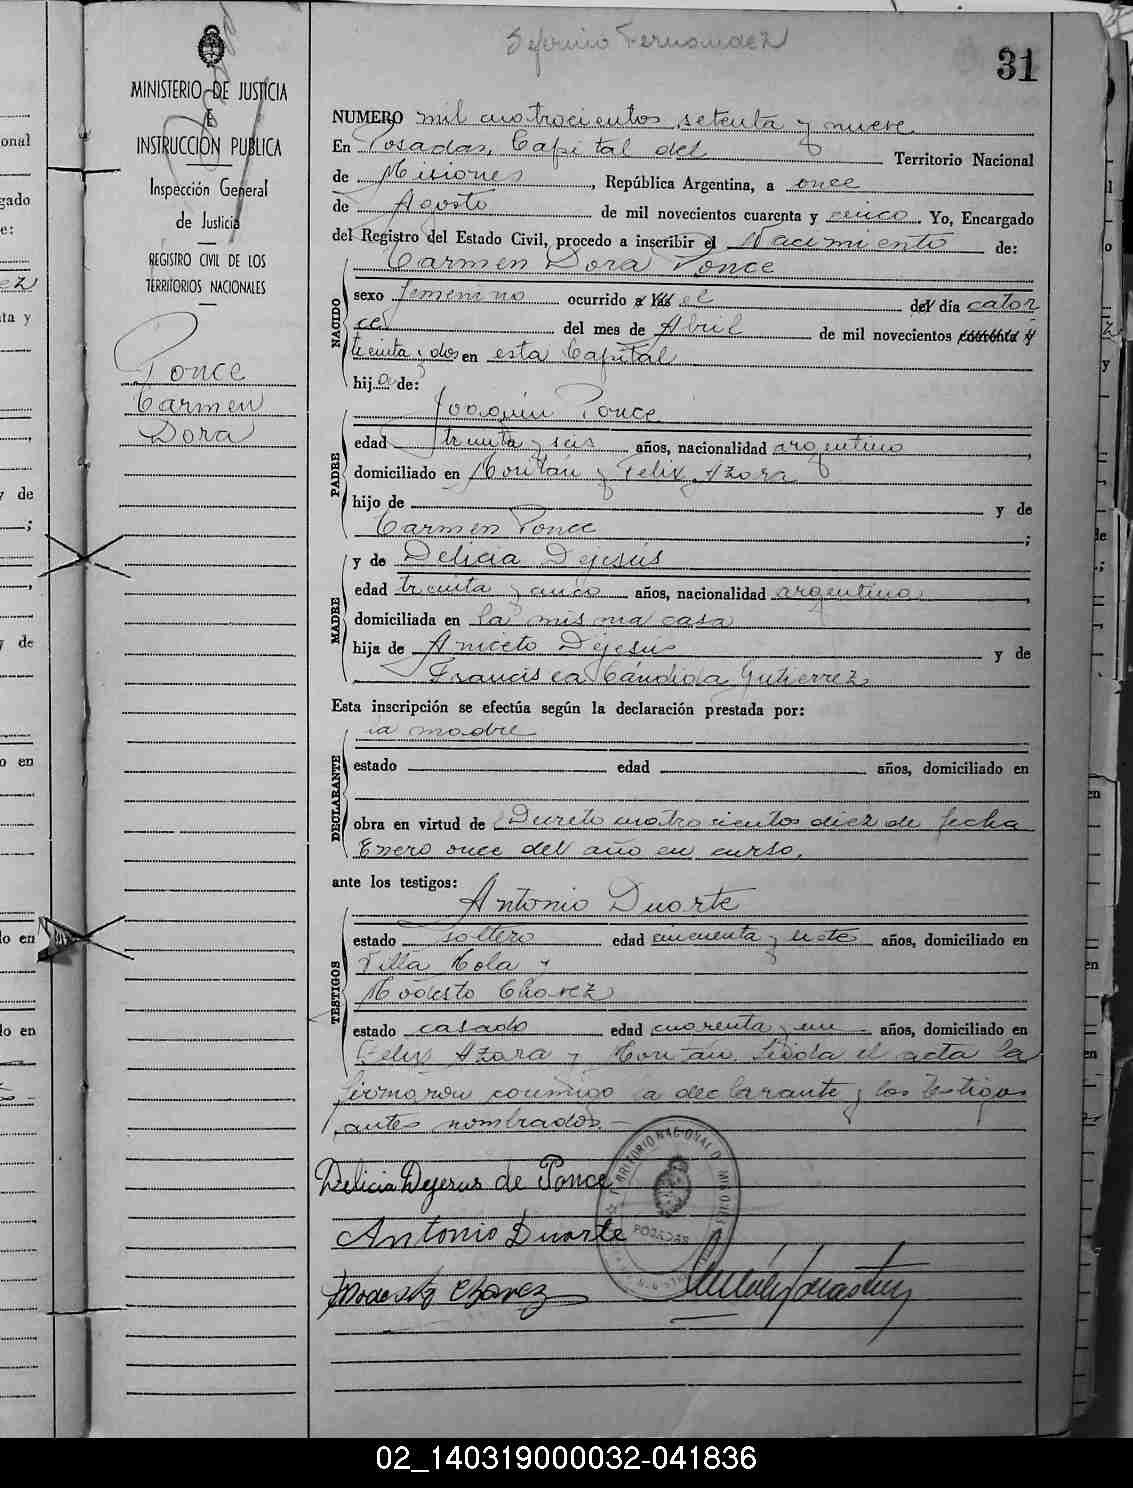 Seferino Fernandez
31
MINISTERIO DE JUSTICIA
E
INSTRUCCIÓN PUBLICA
Inspección General
de Justicia
REGISTRO CIVIL DE LOS
TERRITORIOS NACIONALES
Ponce
Carmen
Dora
NUMERO mil cuatrocientos setenta y nueve
En Posadas, Capital del Territorio Nacional
de Misiones, República Argentina, a once
de Agosto de mil novecientos cuarenta y cinco. Yo, Encargado
del Registro del Estado Civil, procedo a inscribir el Nacimiento de:
NACIDO
Carmen Dora Ponce
sexo femenino ocurrido a las el del día cator
ce del mes de Abril de mil novecientos cuarenta y
treinta y dos en esta Capital
hija de:
PADRE
Joaquin Ponce
edad treinta y seis años, nacionalidad argentino
domiciliado en y Felix Azara
hijo de y de
Carmen Ponce;
MADRE
y de Delicia Dejesús
edad treinta y cinco años, nacionalidad argentina,
domiciliada en la misma casa
hija de Aniceto Dejesus y de
Francisca Cándida Gutierrez
Esta inscripción se efectúa según la declaración prestada por:
DECLARANTE
la madre
estado edad años, domiciliado en
obra en virtud de Decreto cuatrocientos diez de fecha
Enero once del año en curso.
ante los testigos:
TESTIGOS
Antonio Duarte
estado soltero edad cincuenta y siete años, domiciliado en
Villa y
Modesto Chavez
estado casado edad cuarenta y un años, domiciliado en
Felix Azara y Leida el acta la
firmaron conmigo la declarante y los testigos
antes nombrados.—
Delicia Dejesus de Ponce
Antonio Duarte
Modesto Chavez
TERRITORIO NACIONAL D MISIONES
POSADAS
02_140319000032-041836